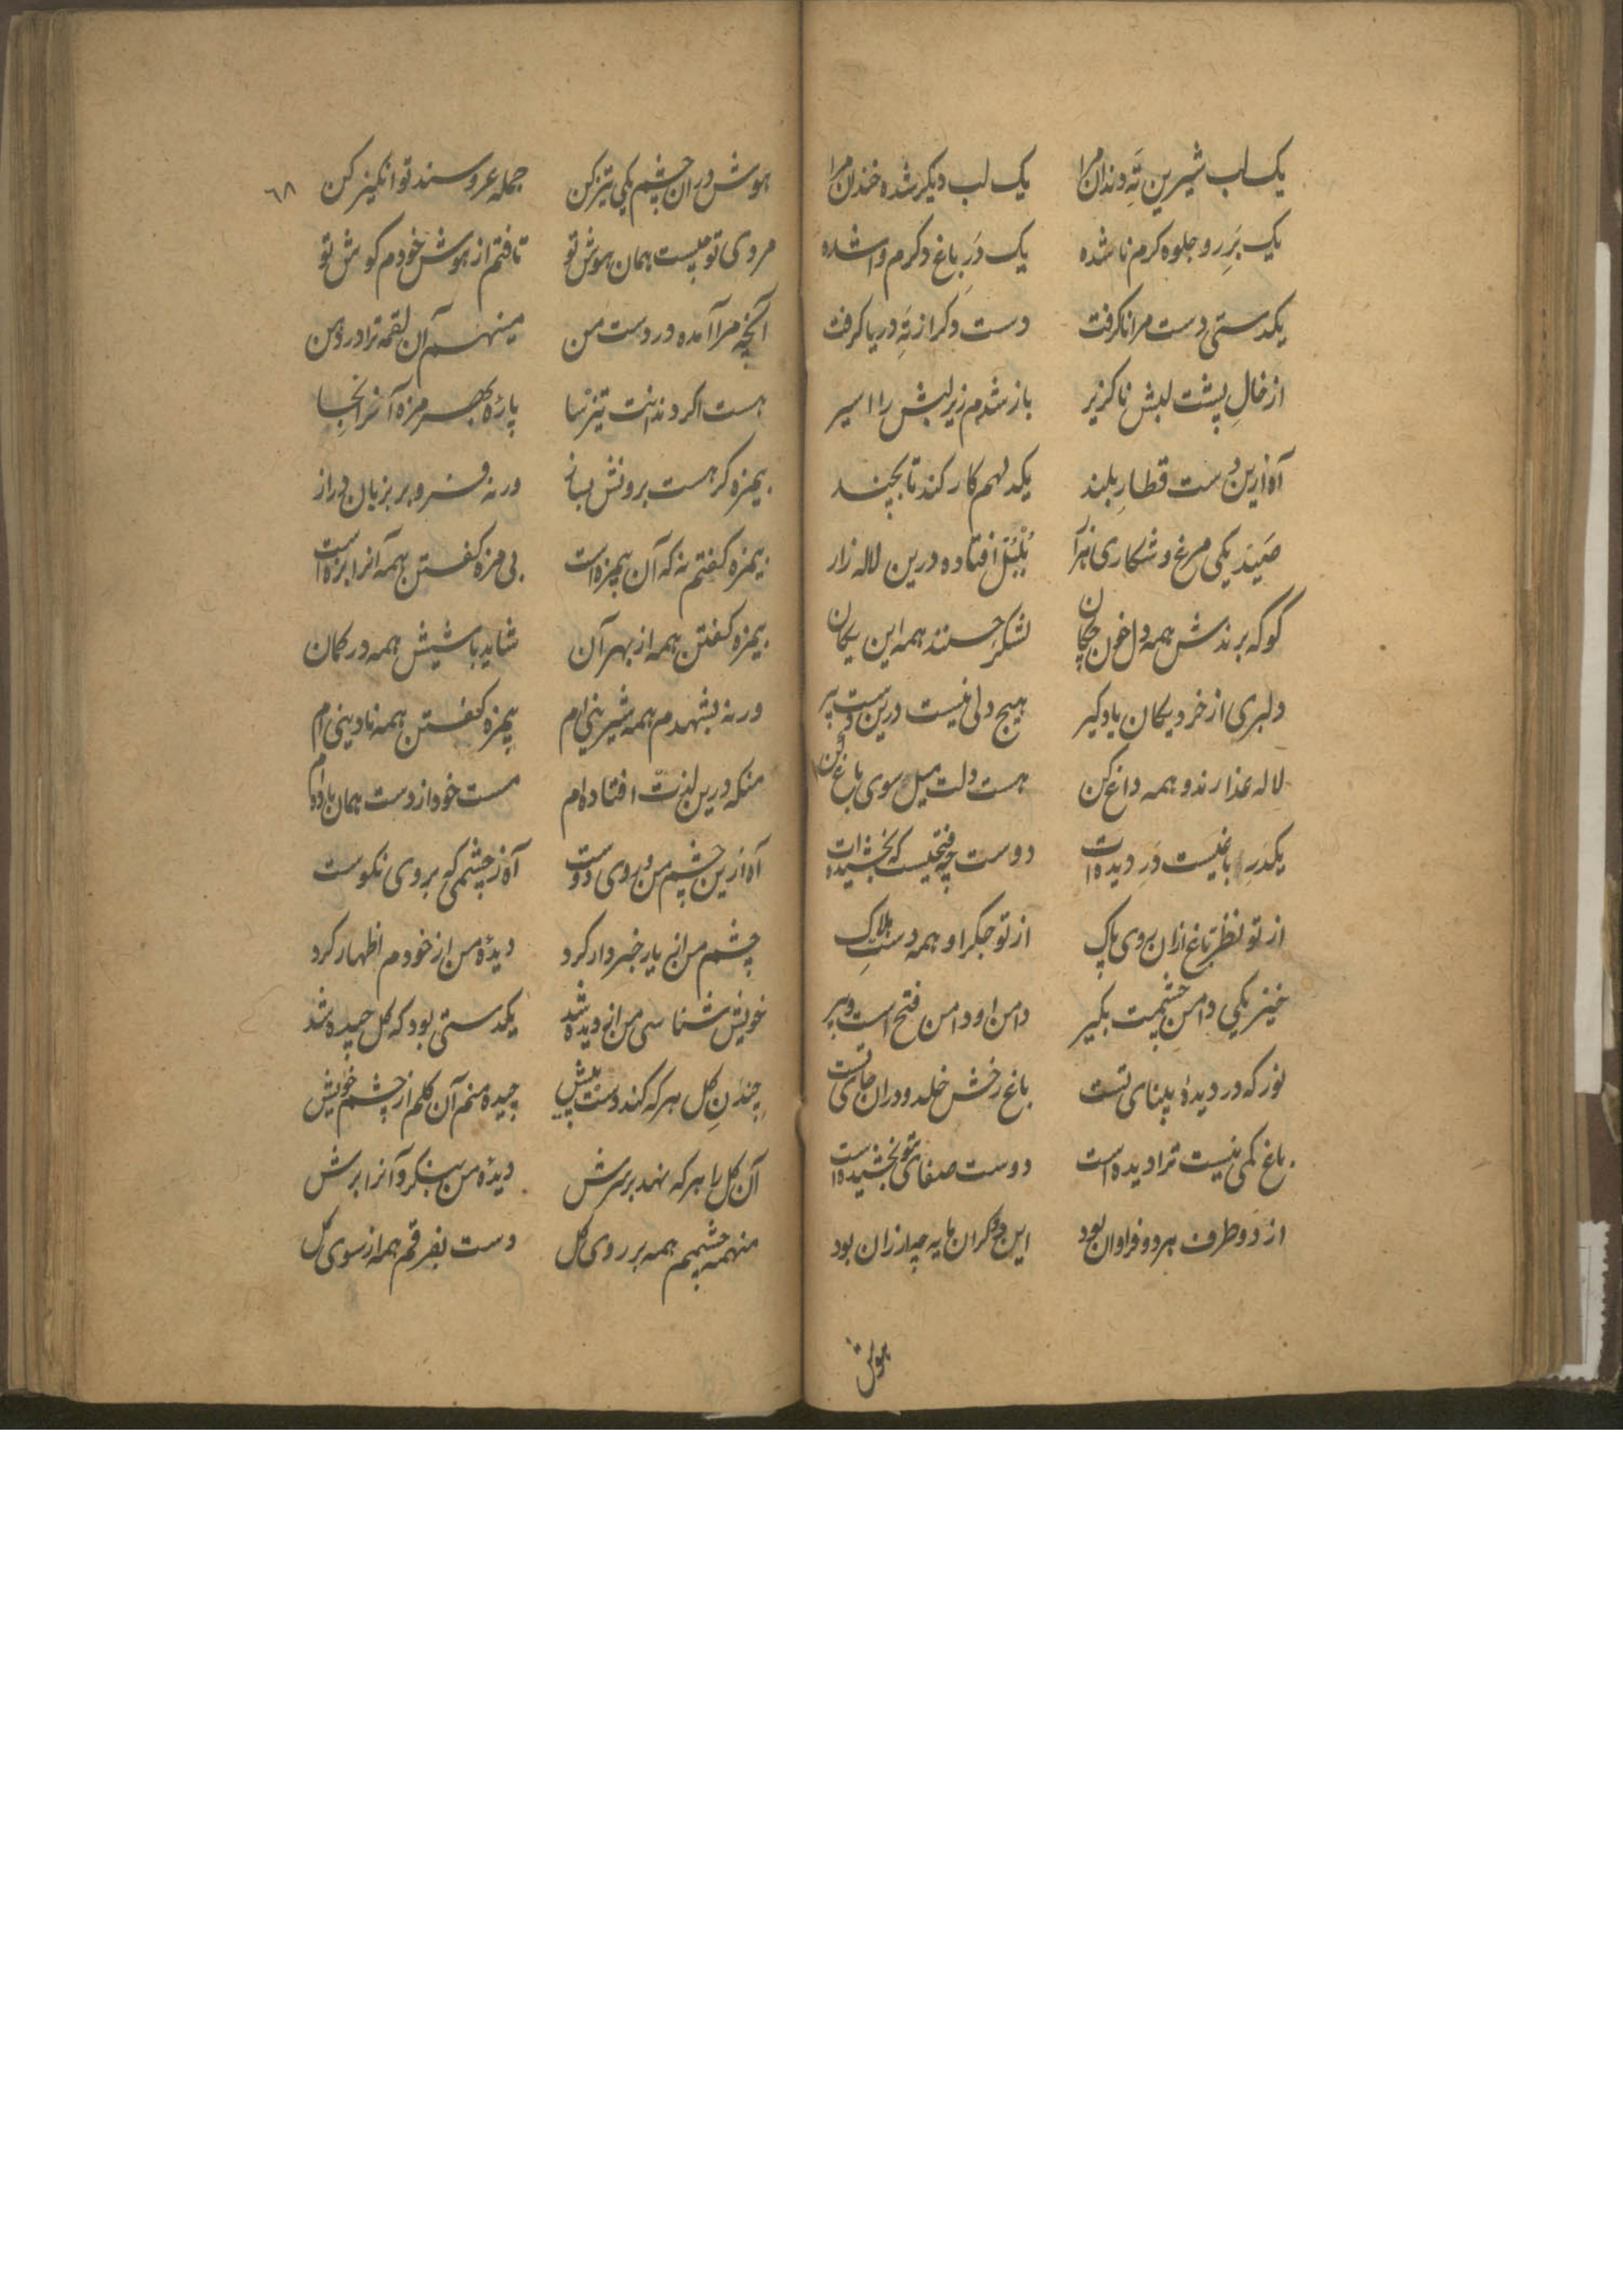 یک لب شیرین تَهِ دندان مرا یک لب دیکر شده خندان مرا
یک بَرِ رو جلوه کرم نا شده یک دَرِ باغ دکرم وا شده
یکدستی دست مرا نکرفت دست دکر از تَهِ دریا کرفت
از خالِ پشت لبش ناکزیر باز شدم زیر لبش را اسیر
آه ازین دست قطارِ بلند یکدلهم کار کند تا بچند
صَیدِ یکی مرغ و شکاری هزار بُلبُل افتاده درین لاله زار
کو که برندش همه دل خون چکان لشکر حسنند همه این یکان
دلبری از خرد یکان یاد کیر هیچ دلی نیست درین دست پیر
لاله عذارند و همه داغ کن هست دلت میل سوی باغ کن
یکدَرِ باغیست دَرِ دیده ات دوست چه فتحیست که بخشیده ات
از تو نظر باغ ازان روی پاک از تو جکر او همه دستِ هلاک
خیز یکی دامنِ چشمت بکیر دامن او دامن فتح است و پیر
نور که در دیدهٔ بینای تست باغ رخش خلد و دران جای تست
باغ کمی نیست ترا دیده است دوست صفای بتو بخشیده است
از دو طرف هر دو فراوان بود این دو کران مایه چه ارزان بود
هوش
٦٨
هوش دران چشم یکی تیز کن جمله عروسند تو انکیز کن
مردی تو چیست همان هوش تو تافتم از هوش خودم کوش تو
آنچه مرا آمده در دست من مینهم آن لقمه ترا در دهن
هست اکر دندانت تیز سا پارهٔ بهر مزه آنرا بخا
بیمزه کر هست برونش بساز ورنه فرو بر بزبان دراز
بیمزه کفتم نه که آن بیمزه است بی مزه کفتن همه آنرا بزه است
بیمزه کفتن همه از بهر آن شاید باشیش همه در کمان
ورنه بشهدم همه شیرینی ام بیمزه کفتن همه نادینی ام
منکه درین لذت افتاده ام مست خود از دست همان باده ام
آه ازین چشم من و روی دوست آه ز چشمی که بروی نکوست
چشم من از یار خبردار کرد دیدهٔ من از خودم اظهار کرد
خویش شناسی من از دیده شد یکدستی بود که کل چیده شد
چیدنِ کل هر که کند دست پیش چیده منم آن کلم از چشم خویش
آن کل را هر که نهد بر سرش دیدهٔ من بنکر و آنرا برش
منهمه چشمم همه بر روی کل دست بفرقم همه از سوی کل